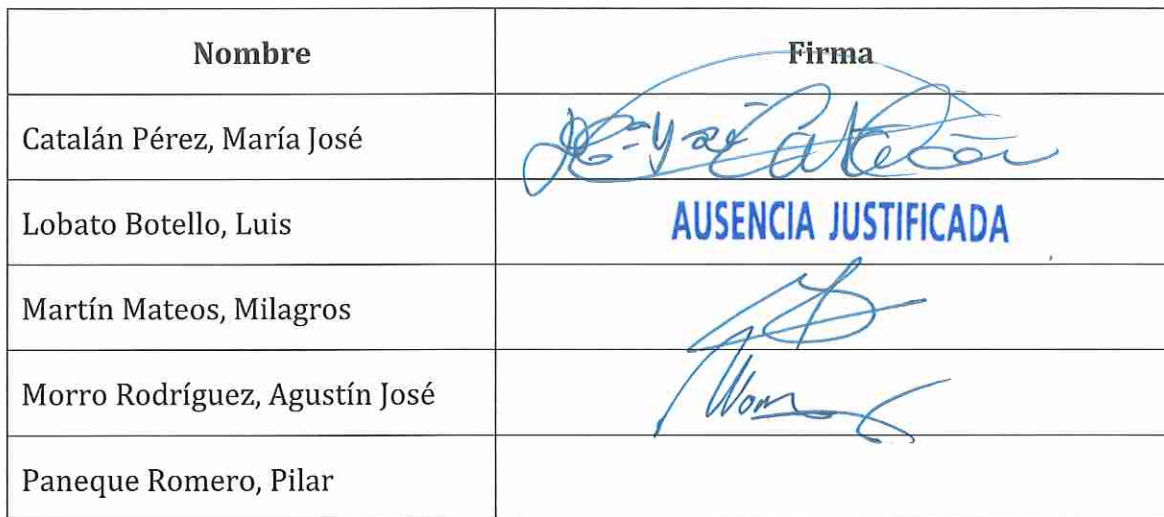 Nombre Firma
Catalán Pérez, María José
Lobato Botello, Luis AUSENCIA JUSTIFICADA
Martín Mateos, Milagros
Morro Rodríguez, Agustín José
Paneque Romero, Pilar